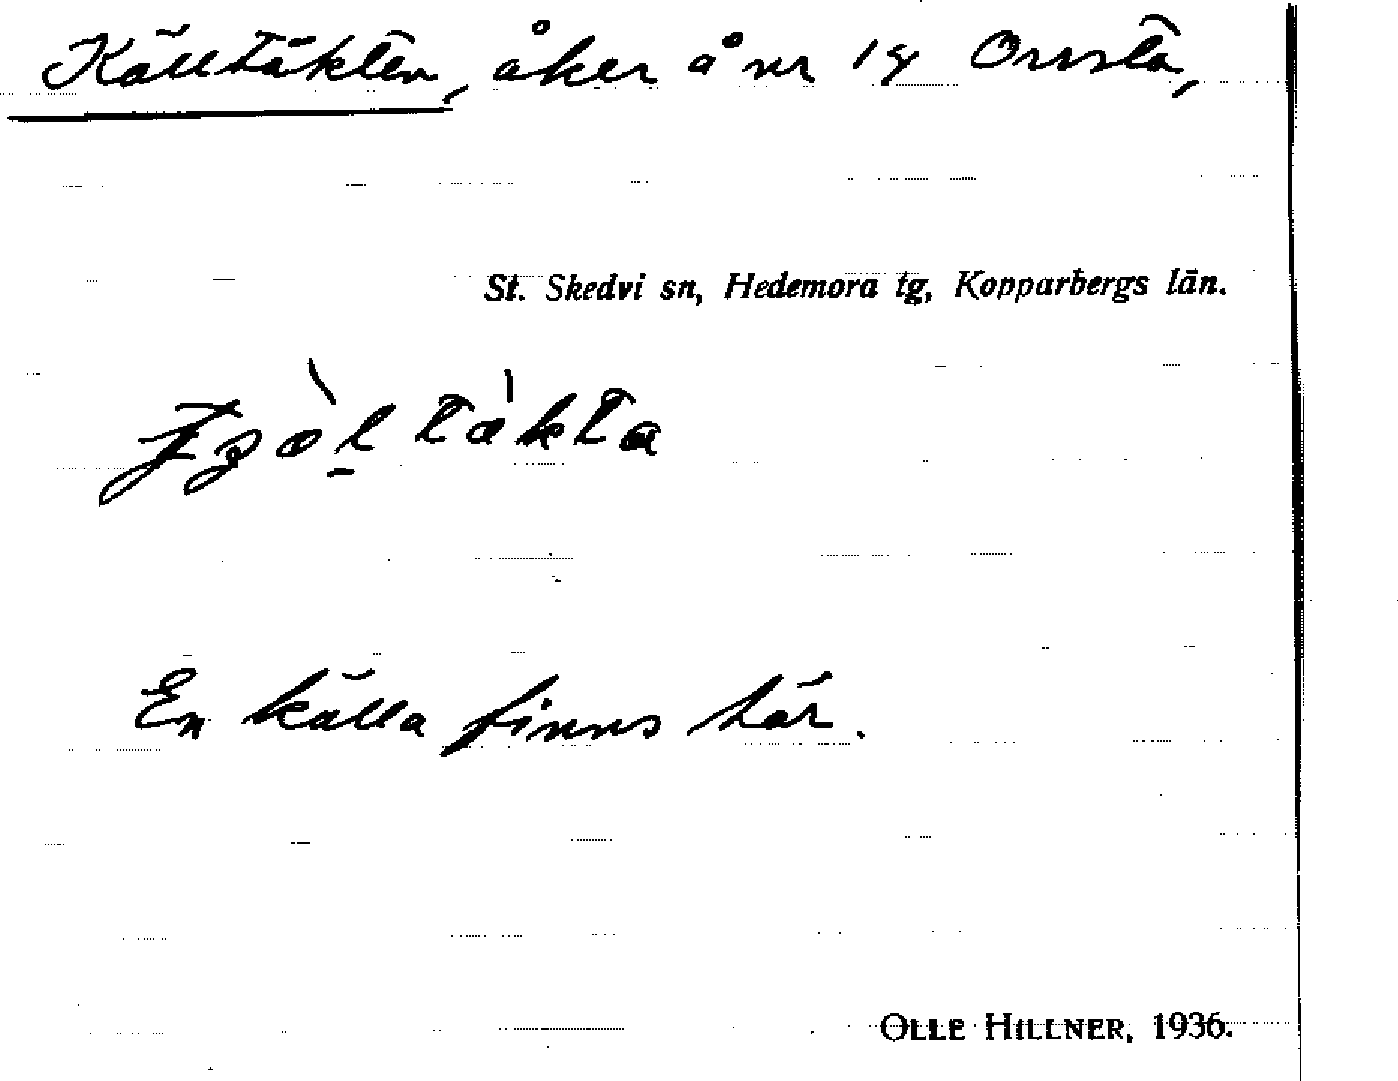 Källtäkten, åker å nr 14 Orrsta,
St. Skedvi sn, Hedemora tg, Kopparbergs län.
En källa finns här.
OLLE HILLNER, 1936.